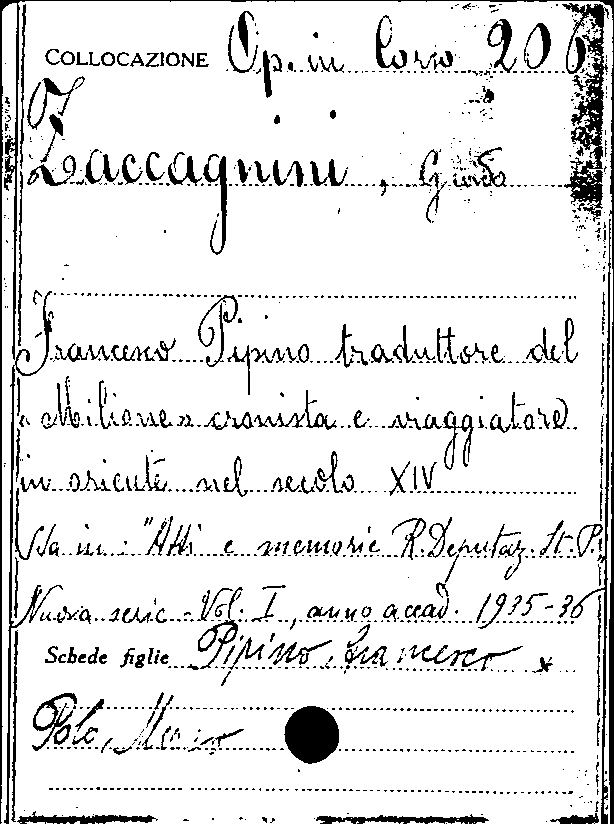 COLLOCAZIONE Op. in Corso 206
Zaccagnini, Guido
Francesco Pipino traduttore del
« Milione » cronista e viaggiatore
in oriente nel secolo XIV
Sta in: "Atti e memorie R. Deputaz. St. P.,
Nuova serie - Vol. I, anno accad. 1935-36
Schede figlie Pipino, Francesco x
Polo, Marco